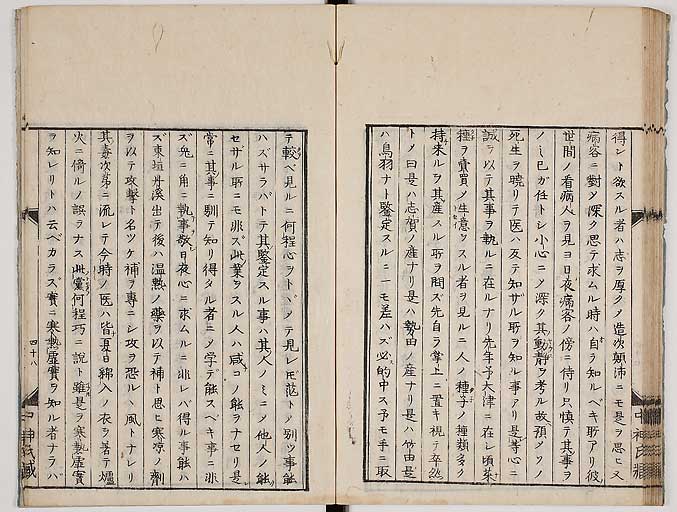 得ント欲スル者ハ志ヲ厚クノ造次顛沛ニモ是ヲ思ヒ又
病客ニ對ノ深ク思テ求ムル時ハ自ラ知ルベキ所アリ彼
世間ノ看病人ヲ見ヨ日夜病客ノ傍ニ侍リ只慎テ其事ヲ
ノミ己ガ任トシ小心ニノ深ク其動靜ヲ考ル故預ジメノ
死生ヲ暁リテ医ハ反テ知ザル所ヲ知ル事アリ是等心ニ
誠ヲ以テ其事ヲ執ルニ在ルナリ先年予大津ニ在レ頃菜
種ヲ賣買ノ生意ヲスル者ヲ見ルニ人ノ種子ノ種類多ク
持来ルヲ其産スル所ヲ問ズ先自ラ掌上ニ置キ視テ卒然
トノ曰是ハ志賀ノ産ナリ是ハ勢田ノ産ナリ是ハ竹田是
ハ鳥羽ナト鑒定スルニ一モ差ハズ必的中ス予モ手ニ取
テ較ベ見ルニ何程心ヲトバメテ見レモ茫トノ別ツ事能
ハズサラバトテ其鑒定スル事ハ其人ノミニノ他人ノ能
セザル所ニモ非ズ此業ヲスル人ハ咸コレ能ヲナセリ是
常ニ其事ニ馴テ知リ得タル者ニノ学テ能スベキ事ニ非
ズ兎ニ角ニ執事敬日夜心ニ求ムルニ非レバ得ル事能ハ
ズ東垣丹溪出テ後ハ温熱ノ藥ヲ以テ補ト思ヒ寒凉ノ劑
ヲ以テ攻撃ト名ツケ補ヲ專ニシ攻ヲ恐ルヽ風トナレリ
其毒次第ニ流レテ今時ノ医ハ皆夏日綿入ノ衣ヲ著テ爐
火ニ倚ルノ誤ヲナス此黨何程巧ニ說ト雖是ヲ寒熱虚實
ヲ知レリトハ云ベカラズ實ニ寒熱虚實ヲ知ル者ナラバ
四十八
中神氏藏